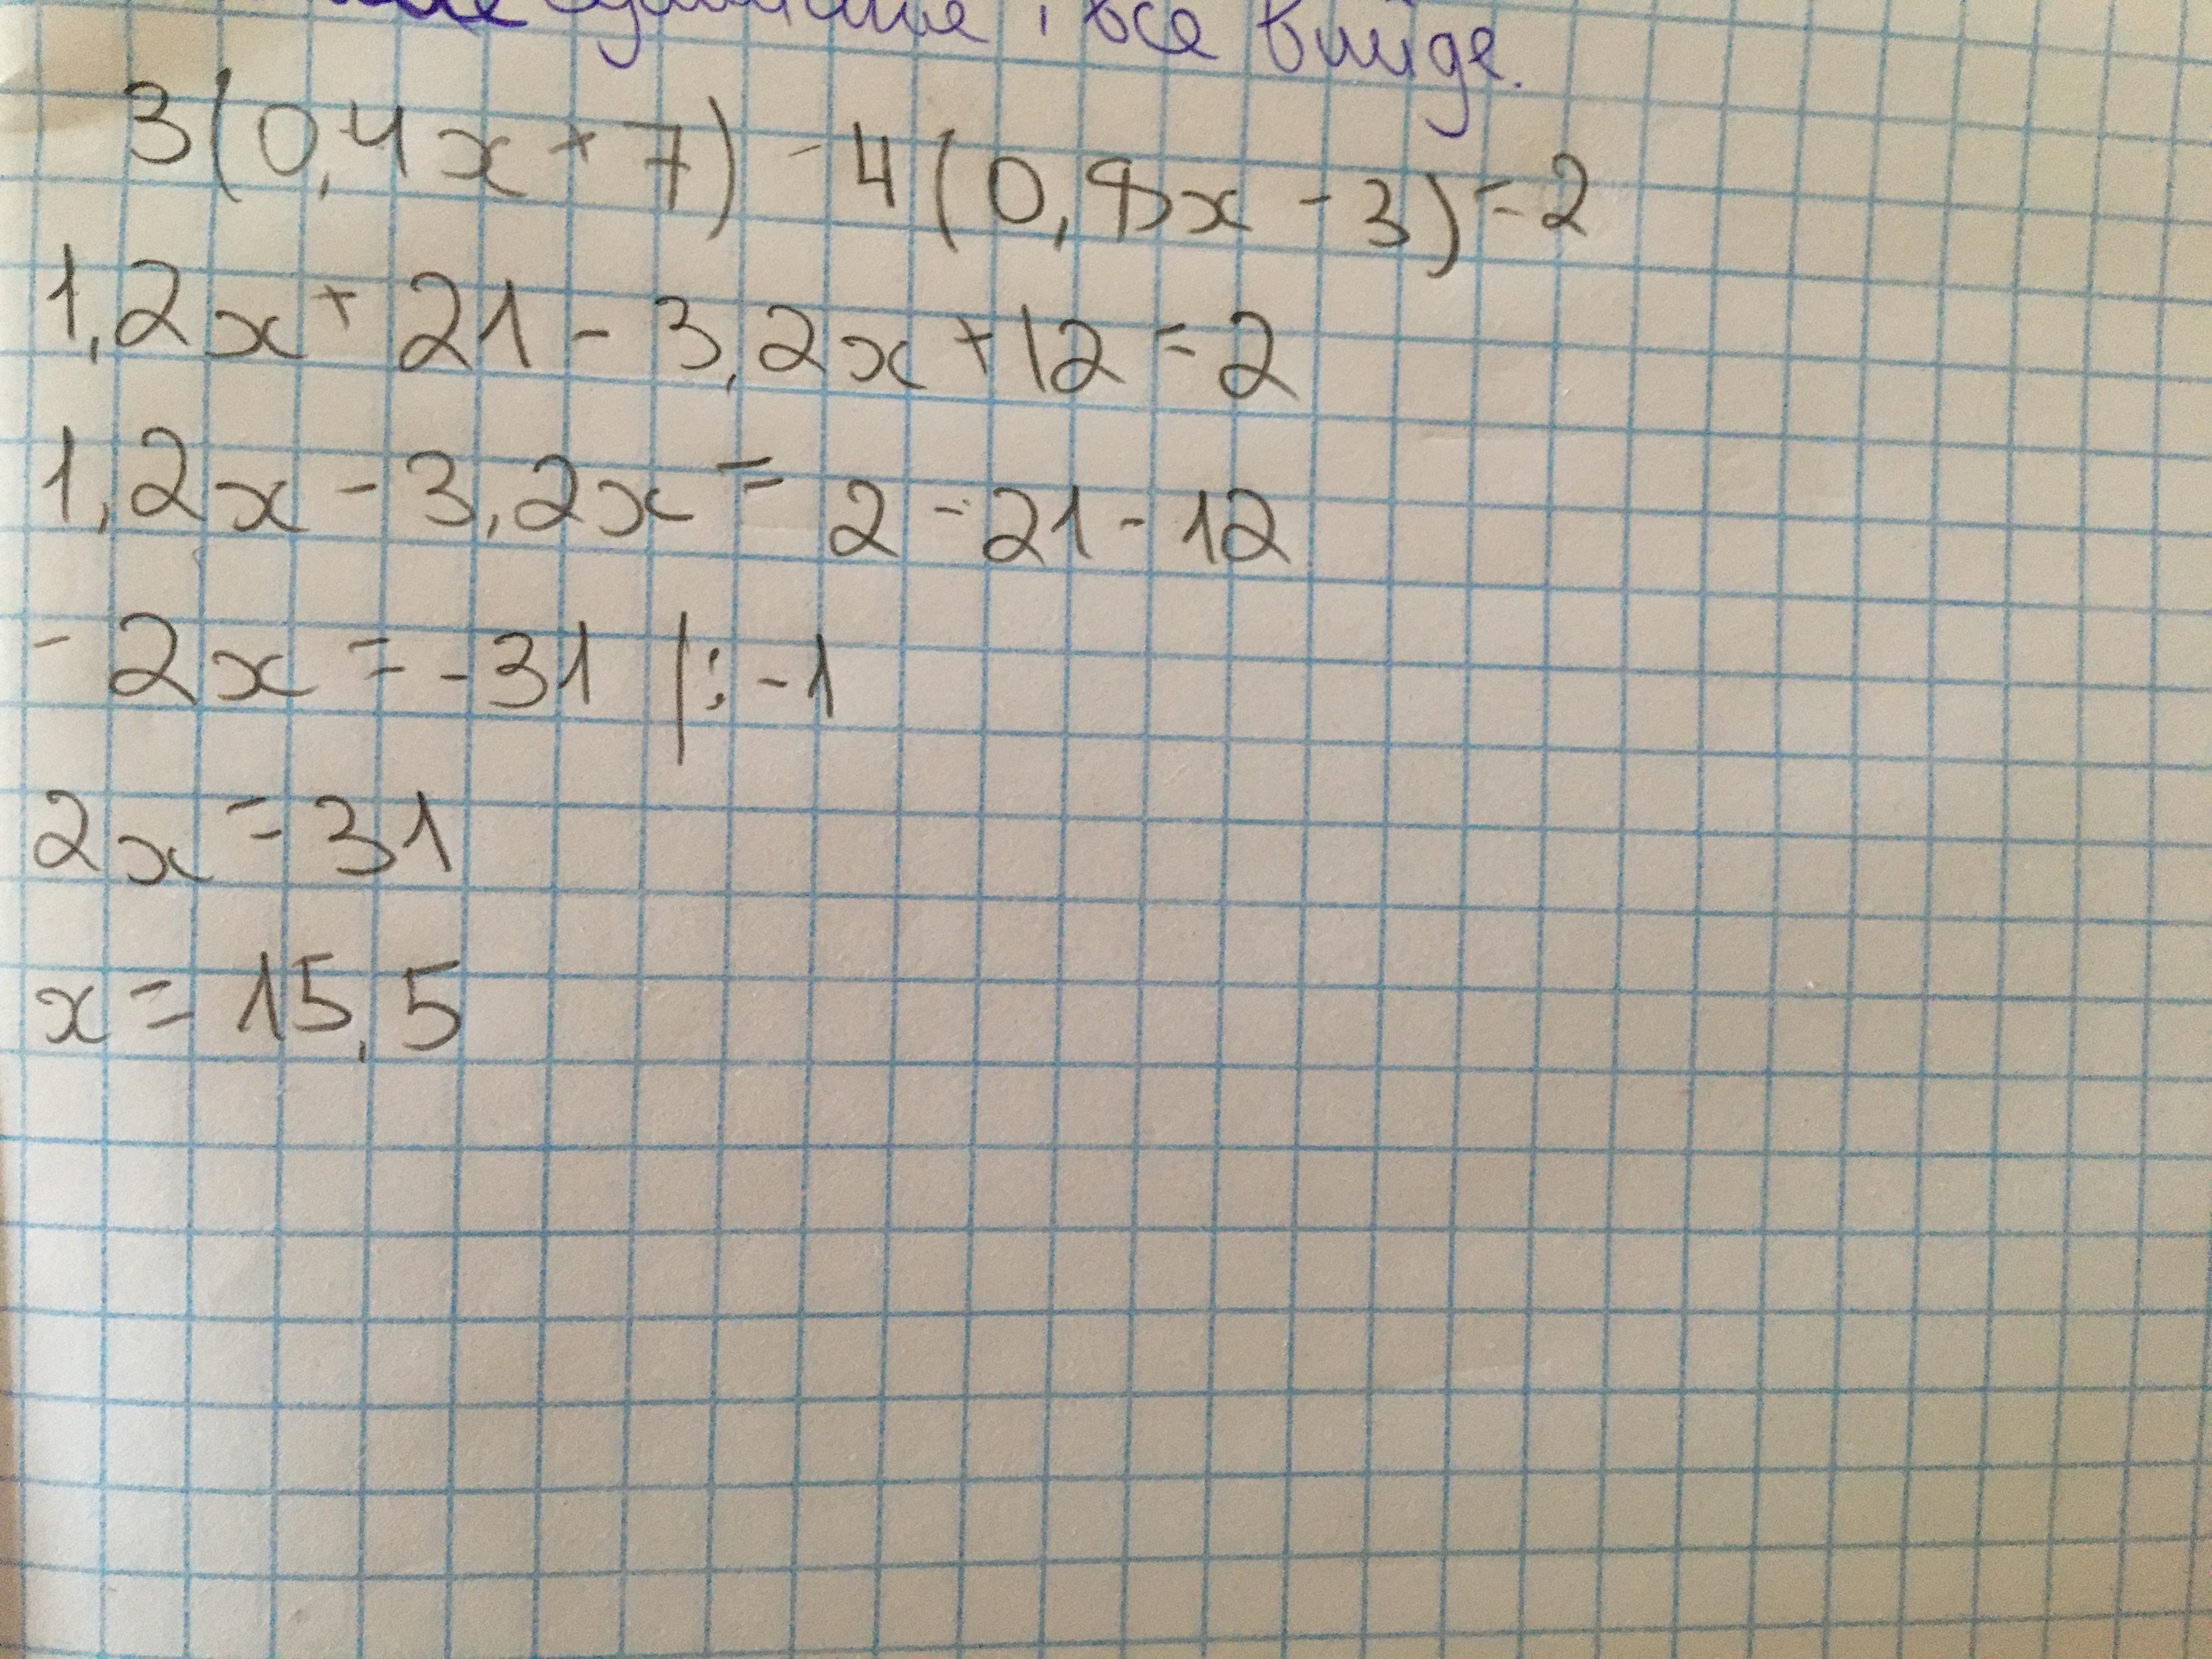 , все вийде.
3(0,4x + 7) - 4(0,8x - 3) = 2
1,2x + 21 - 3,2x + 12 = 2
1,2x - 3,2x = 2 - 21 - 12
- 2x = -31 |: -1
2x = 31
x = 15,5